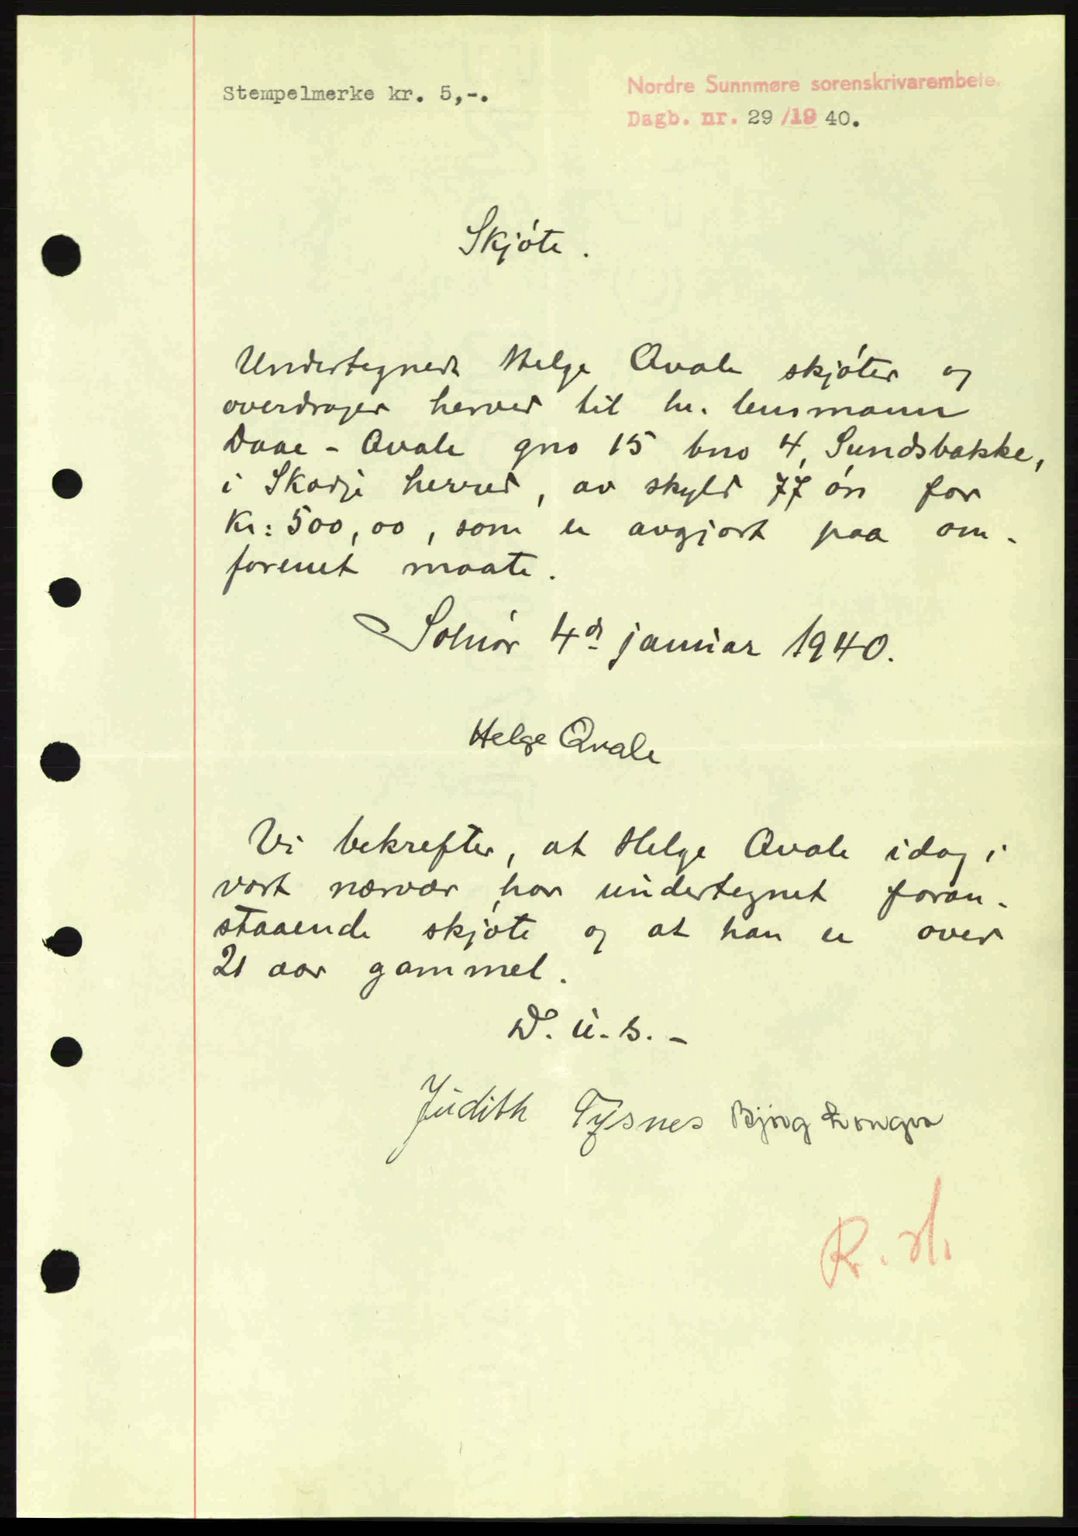 Stempelmerke kr. 5,-.
Nordre Sunnmøre sorenskrivarembete
Dagb. nr. 29 /19 40.
Skjøte.
Undertegnede Helge Qvale skjøter og
overdrager herved til hr. lensmann
Daae - Qvale gno 15 bno 4, Sundsbakke,
i Skodje herred, av skyld 77 øre for
Kr: 500,00, som er avgjort paa om-
forenet maate.
Solnør 4de januar 1940.
Helge Qvale
Vi bekrefter, at Helge Qvale idag i
vort nærvær har undertegnet foran-
staaende skjøte og at han er over
21 aar gammel.
D. u. s. -
Judith Tysnes Bjørg Longva